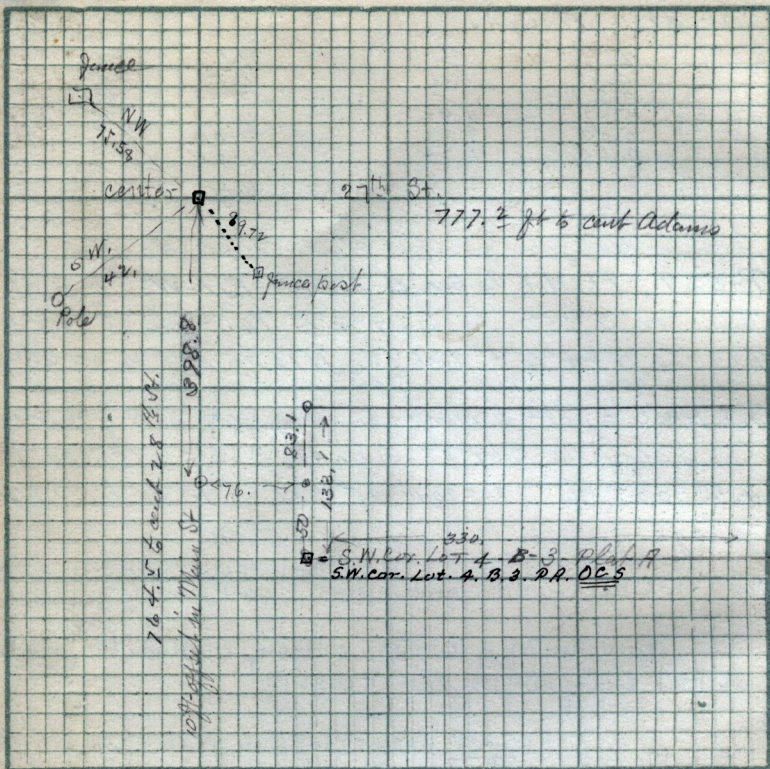 Fence
NW
75.58
center
27th St.
777.2 ft to cent Adams
89.72
S W.
42.
Fence post
Pole
398.8
764.5 to cent 28th St.
10 ft offset in Main St
83.1
133.1
76.
50
330.
S.W. Cor. Lot 4 - B-3 - Plat A
S.W. cor. Lot. 4. B. 3. P.A. OCS